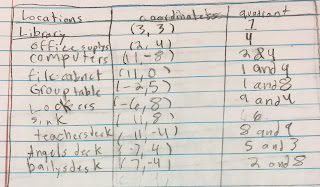 Locations coordinates quadrant
Library (3, 3) 1
office supplys (2, 4) 4
computers (11, -8) 2 &4
file cabinet (11, 0) 1 and 4
Group table (-2, 5) 1 and 8
Lockers (-6, 8) 9 and 4
sink (11, 8) 6
teachers desk (11, -4) 8 and 9
Angels deck (-7, 4) 5 and 3
bailys desk (7, -4) 2 and 8